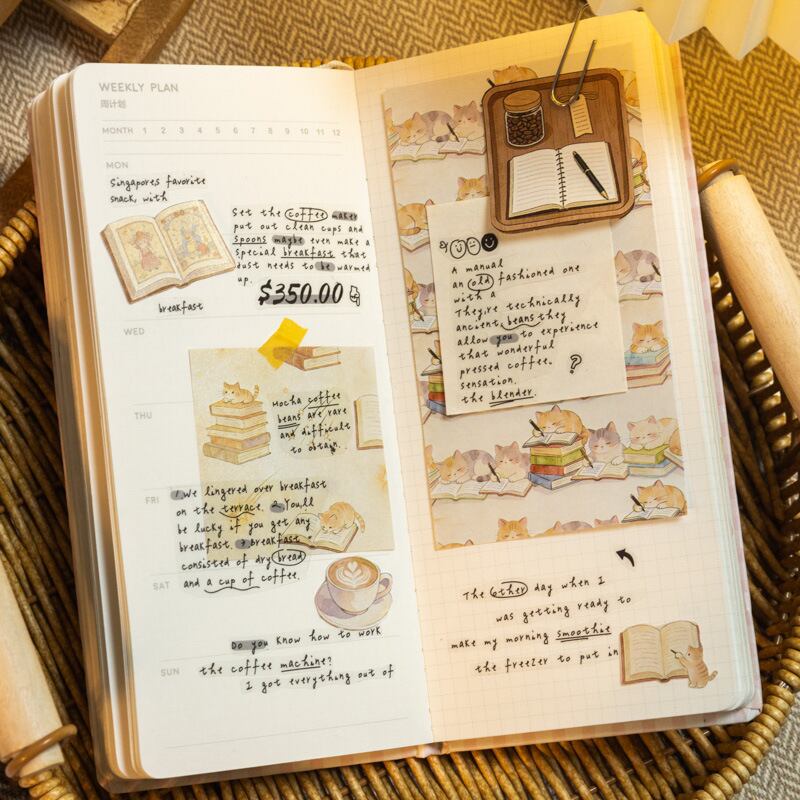 WEEKLY PLAN
周计划
MONTH 1 2 3 4 5 6 7 8 9 10 11 12
MON
Singapores favorite
snack, with
Set the coffee maker
put out clean cups and
spoons maybe even make a
special breakfast that
just needs to be warmed
up.
$350.00
breakfast
WED
THU
Mocha coffee
beans are rare
and difficult
to obtain.
FRI
1 We lingered over breakfast
on the terrace. 2 You'll
be lucky if you get any
breakfast. 3 Breakfast
consisted of dry bread
SAT
and a cup of coffee.
Do you know how to work
SUN
the coffee machine?
I got everything out of
A manual
an old fashioned one
with a
They,re technically
ancient, beans they
allow you to experience
that wonderful
pressed coffee.
sensation. ?
the blender.
The other day when I
was getting ready to
make my morning smoothie
the freezer to put in